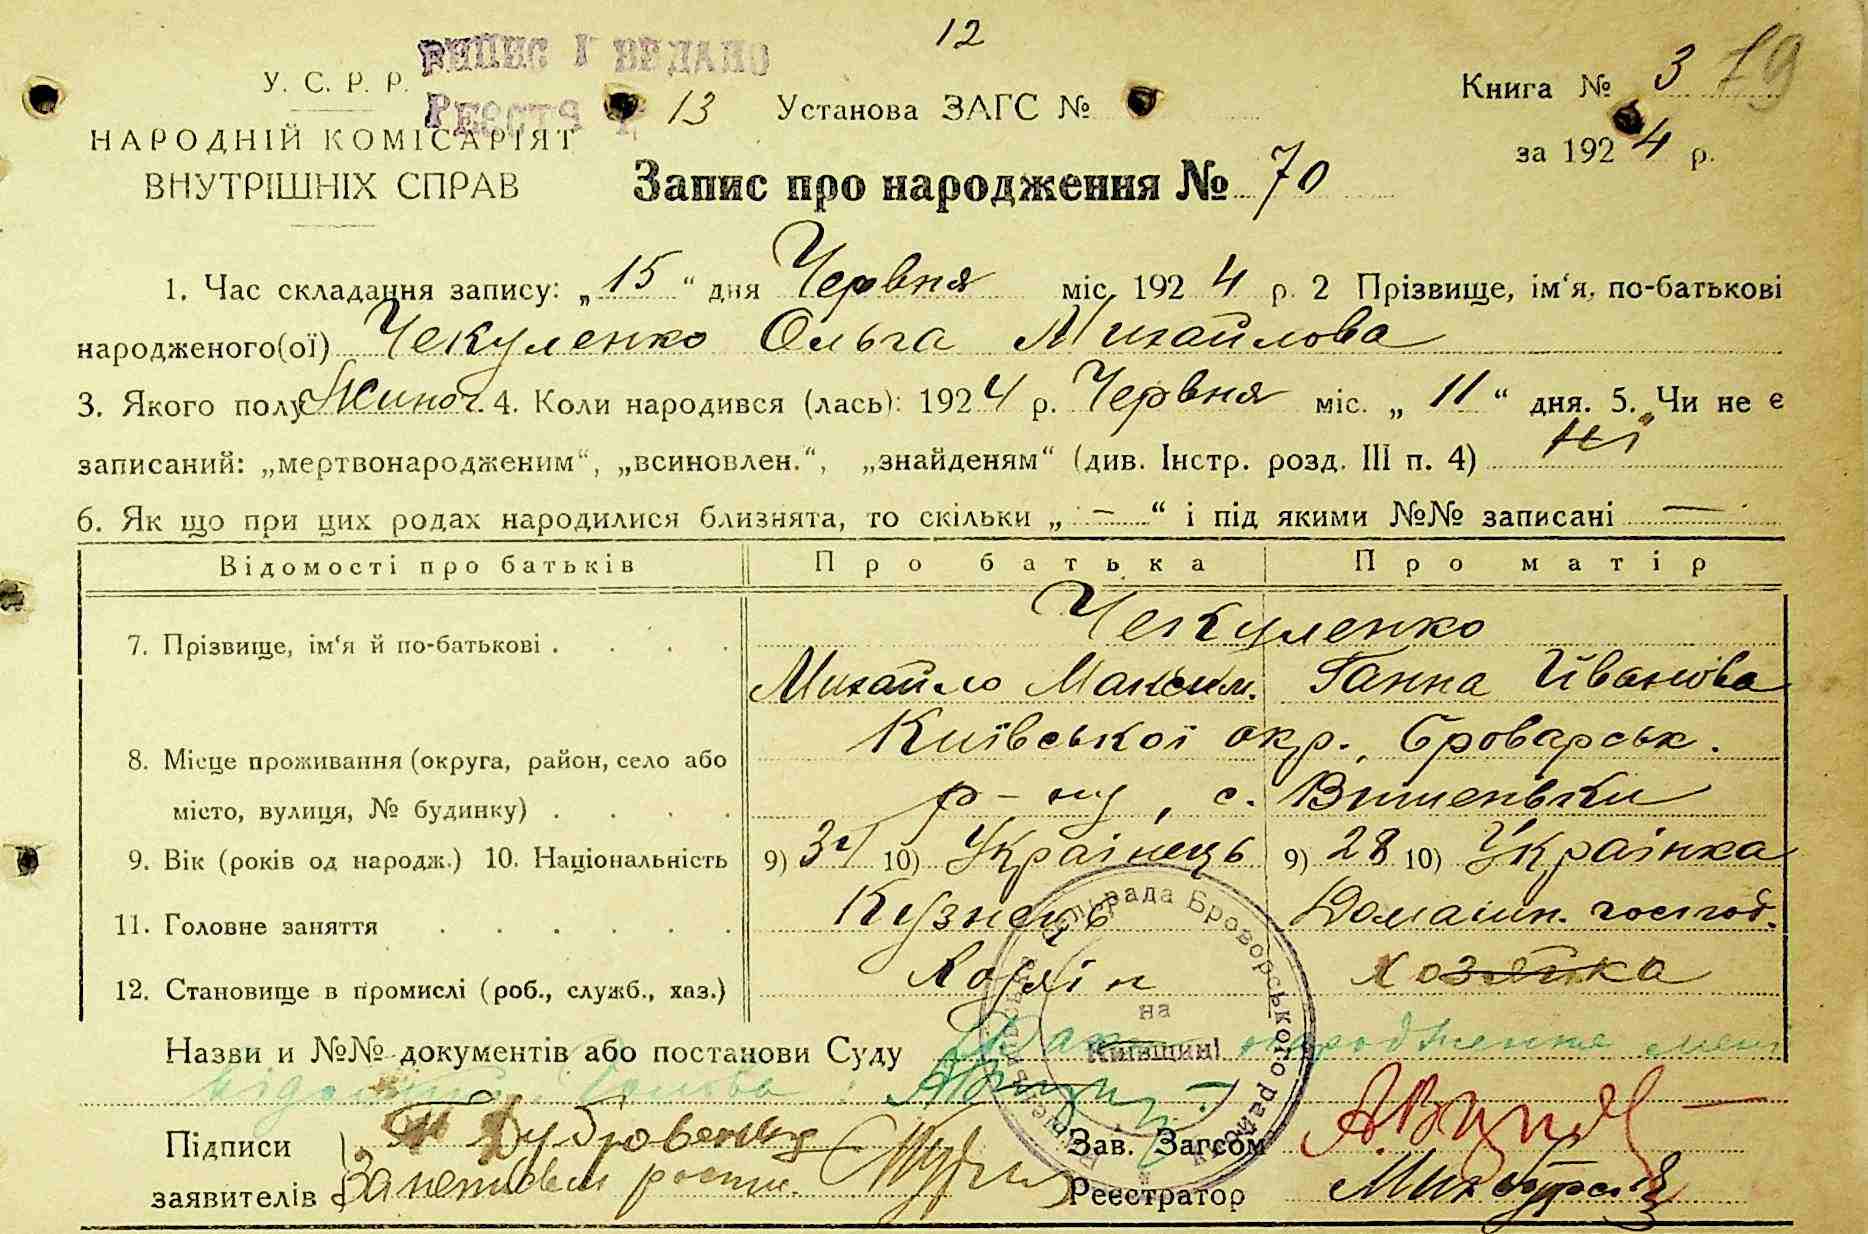 12
У. С. Р. Р.
ВИПИС ВИДАНО
13 Установа ЗАГС №
Книга № 3 79
НАРОДНІЙ КОМІСАРІЯТ
за 1924 р.
ВНУТРІШНІХ СПРАВ
Запис про народження № 70
1. Час складання запису: „15“ дня Червня міс. 1924 р. 2 Прізвище, ім‘я, по-батькові
народженого(ої) Чекуленко Ольга Михайлова
3. Якого полу Жиноч. 4. Коли народився (лась): 1924 р. Червня міс. „11“ дня. 5. Чи не є
записаний: „мертвонародженим“, „всиновлен.“, „знайденям“ (див. Інстр. розд. III п. 4) Ні
6. Як що при цих родах народилися близнята, то скільки „ – “ і під якими №№ записані —
Відомості про батьків Про батька Про матір
7. Прізвище, ім‘я й по-батькові . . . . Чекуленко
Михайло Максим. Ганна Йванова
8. Місце проживання (округа, район, село або Київської окр., Броварськ.
місто, вулиця, № будинку) . . . . р-ну, с. Вишеньки
9. Вік (років од народж.) 10. Національність 9) 34 10) Українець 9) 28 10) Українка
11. Головне заняття . . . . . . Кузнець Домашн. господ.
12. Становище в промислі (роб., служб., хаз.) Хозяїн хозяйка
на
Київщині
Назви и №№ документів або постанови Суду народження мені
відомий Голова:
Підписи Дубровенко Зав. Загсом
заявителів Реєстратор